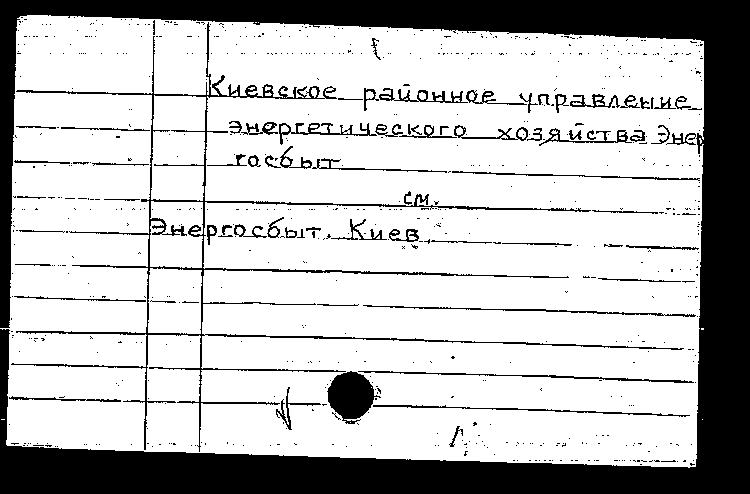 Киевское районное управление
энергетического хозяйства Энер
госбыт
см.
Энергосбыт. Киев